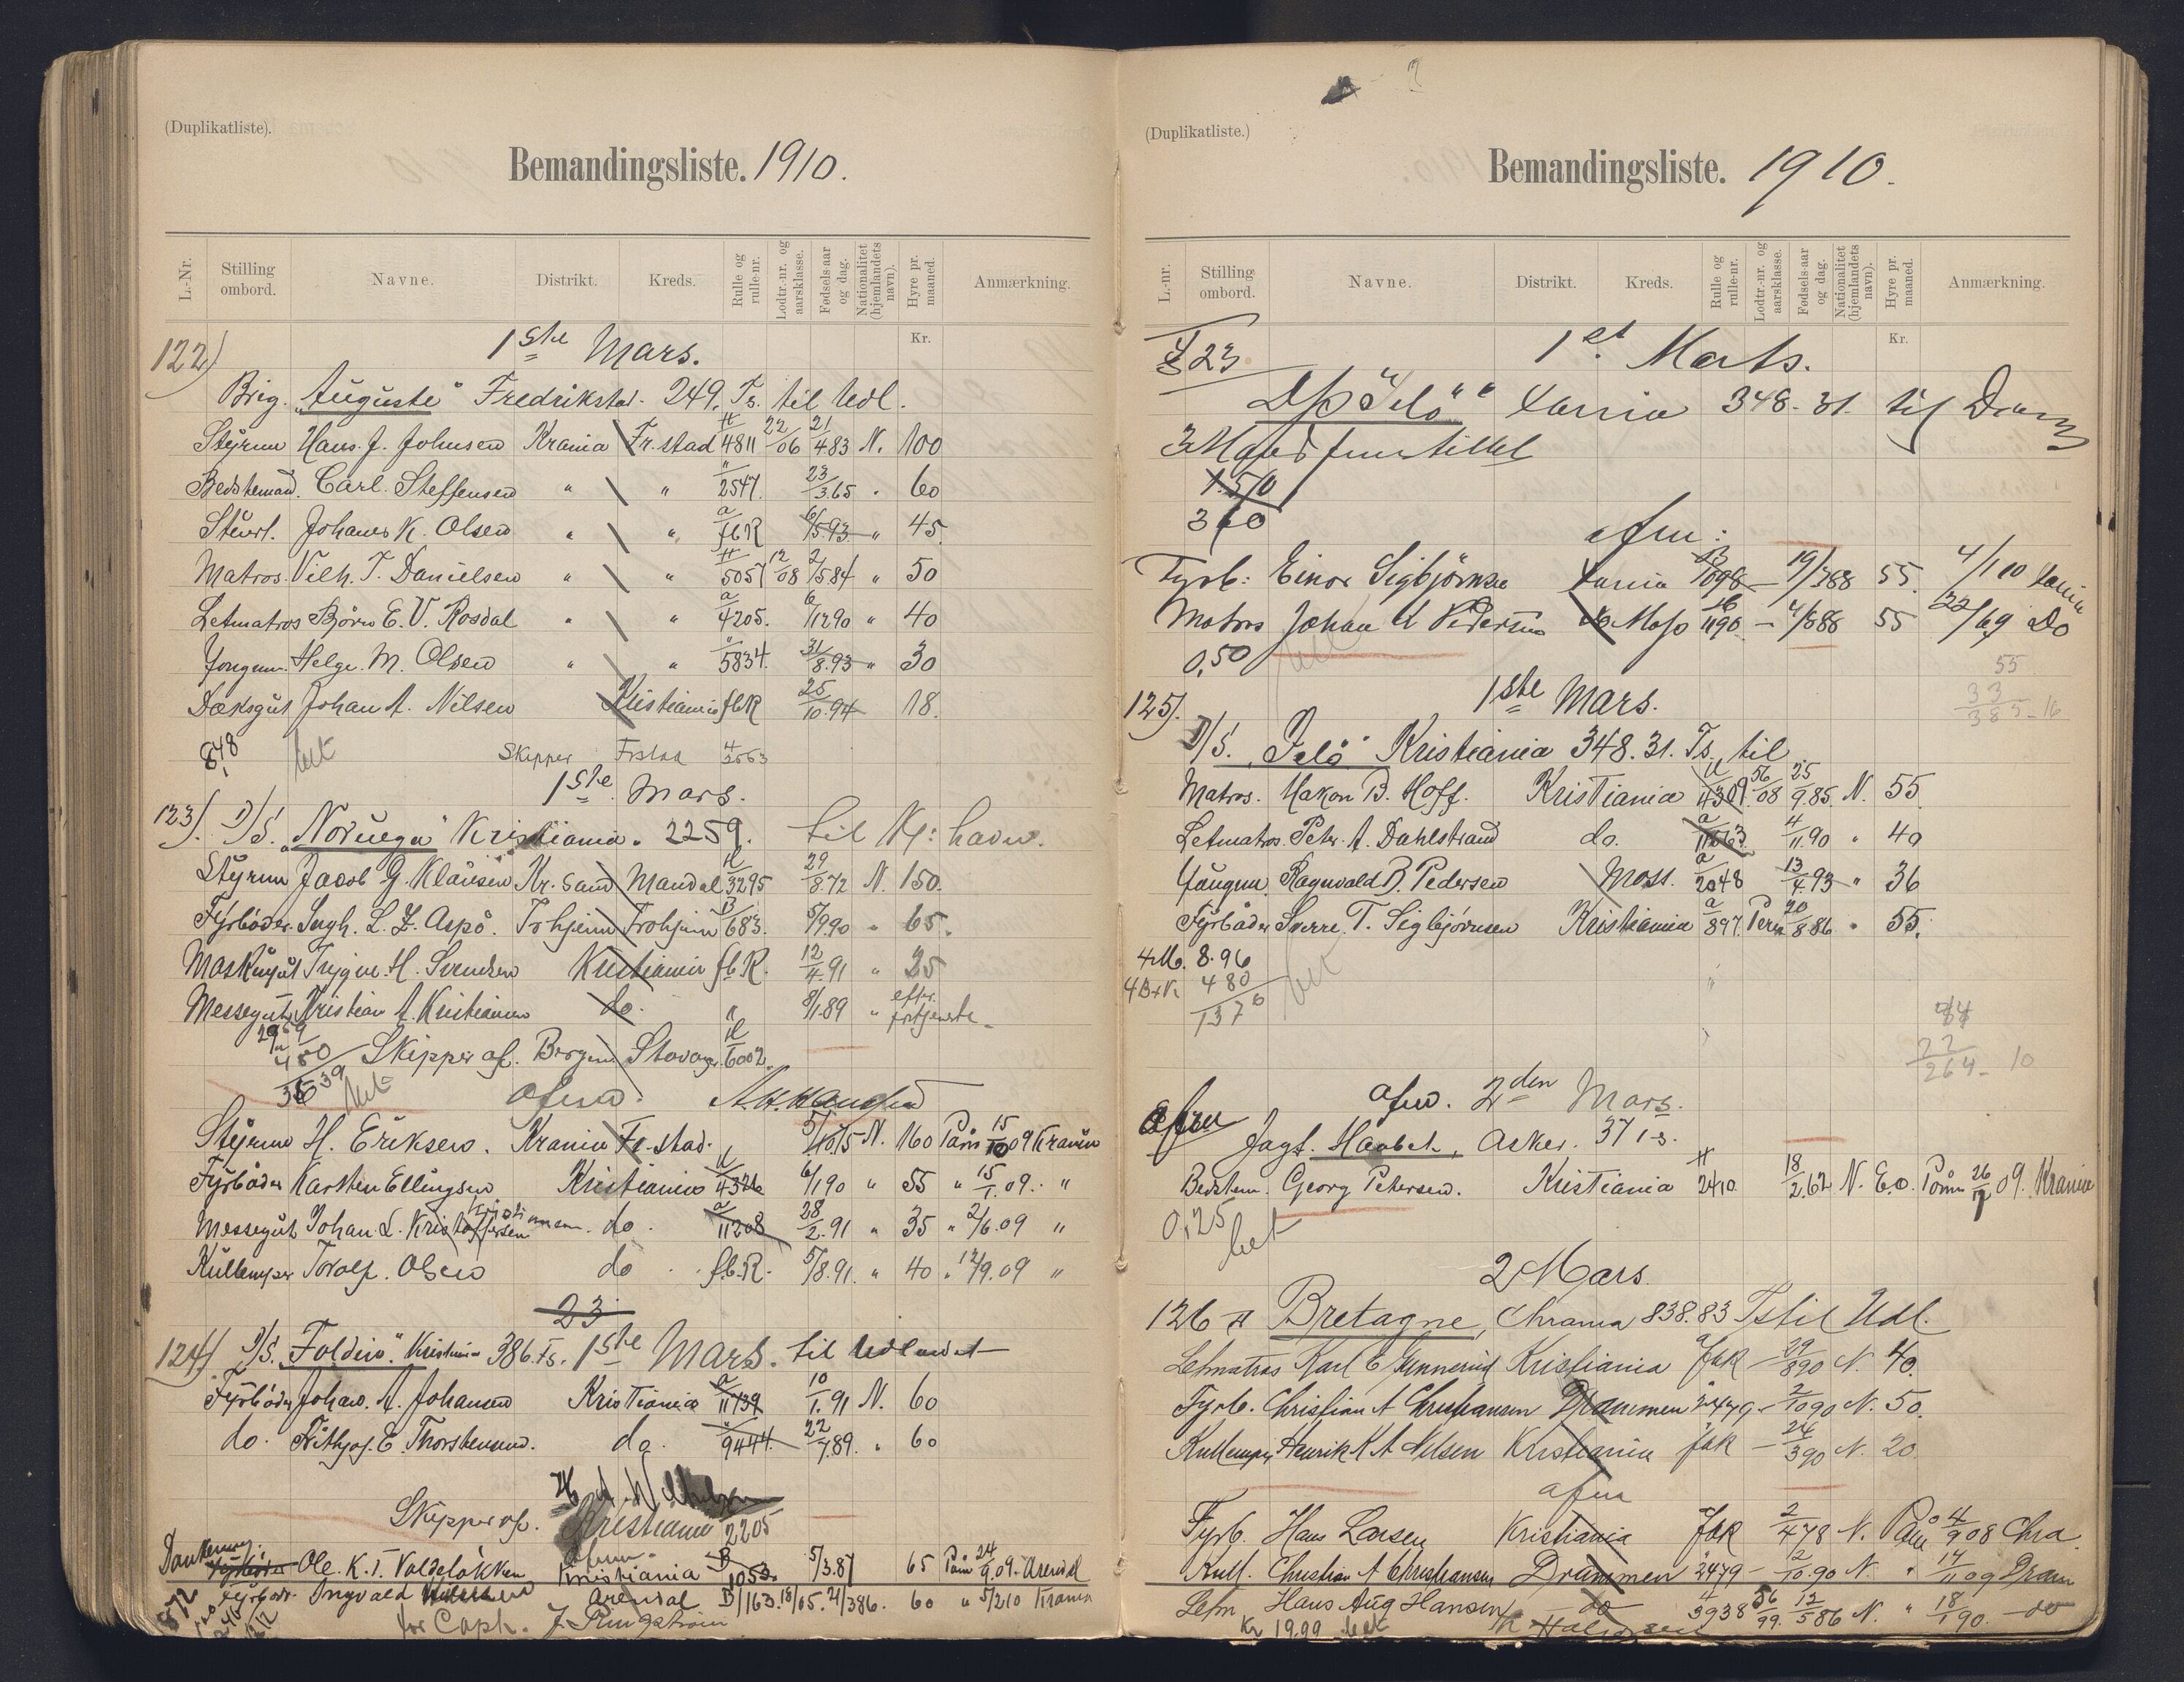 (Duplikatliste).
Bemandingsliste. 1910.
L.-Nr. Stilling ombord. Navne. Distrikt. Kreds. Rulle og rulle-nr. Lodtr.-nr. og aarsklasse. Fødsels-aar og dag. Nationalitet (hjemlandets navn). Hyre pr. maaned. Anmærkning.
Kr.
122) 1ste Mars.
Brig. "Auguste" Fredrikstad. 249. Ts. til Udl.
Styrm Hans. J. Johnsen Krania Fr. stad 4811 22/06 21/4.83 N. 100
Bedstemand. Carl. Steffensen " " 2547. 23/3.65 " 60
Stuert. Johanes K. Olsen " " fbR 6/5.93 " 45.
Matros. Vilh. T. Danielsen " " 5057 12/08 2/5.84 " 50
Letmatros Bjørn E. V. Rosdal " " a/4205. 6/12.90 " 40
Jongm. Helge. M. Olsen " " 5834. 31/8.93 " 30
Dæksgut Johan A. Nilsen Kristiania fbR 25/10.94 18.
8,48 bet Skipper Frstad 4/2563
1ste Mars.
123). D/S. "Noruega" Kristiania. 2259. til Kj:havn.
Styrm Jacob G. Klausen Kr. Sand Mandal 3295 29/8.72 N. 150.
Fyrbøder. Ingh. L. Z. Aspø. Trhjem Trohjem B/683. 5/9.90 " 65.
Maskingut Trygve. H. Svendsen Kristiania fbR. 12/4.91 " 25
Messegut Kristian A. Kristiansen do. " 8/1.89 " efter fortjeneste.
Skipper af. Bergen Stavanger 6002.
bet afm.
Styrm H. Eriksen. Krania Fr. stad. N. 160 Paam 15/10 09 Krania
Fyrbøder Karsten Ellingsen Kristiania 4326 6/1 90 " 55 " 15/1.09. "
Messegut Johan. L. Kristoffersen Kristiansen. do. a/11208 28/2.91 " 35 " 2/6.09 "
Kullemper Torolf. Olsen do f.b.R. 5/8.91. " 40 " 12/9.09 "
23
124) D/S. "Foldin". Kristiania 386. Ts. 1ste Mars. til Udlandet
Fyrbøder Johan. A. Johansen Kristiania a/11739 10/1.91 N. 60
do. Frithjof. E. Thorstensen. do. 9444. 22/7.89. " 60
Skipper af. Kristiania 2205
afm.
Donkeym: Ole. K. T. Voldeløkken Kristiania B/1053. 5/3.87 65 Paam 24/9.09. Arendal
Fyrbødr. Ingvald Arendal B/163. 18/05. 21/3 86. 60 " 5/2 10 Krania
for Capt. J. Ringstrøm
(Duplikatliste.)
Bemandingsliste. 1910.
L.-nr. Stilling ombord. Navne. Distrikt. Kreds. Rulle og rulle-nr. Lodtr.-nr. og aarsklasse. Fødsels-aar og dag. Nationalitet (hjemlandets navn). Hyre pr. maaned. Anmærkning.
Kr.
23 1st Marts.
D/S "Jelø" Xania 348-31. til Dram
3 Mand frem tillel
1.510
360
afm:
Fyrb: Einar Sigbjörnsen Xania 1098 - 19/3 88 55. 4/1 10 Xania
Matros Johan A Pedersen Moss 1190 - 4/8 88 55 22/6 9 Do
0,50 bet
55
33
385-16
125). 1ste Mars.
D/S. "Jelö" Kristiania 348.31. Ts. til
Matros. Hakon B. Hoff. Kristiania 4309. 56/08 25/9.85. N. 55
Letmatros. Peter. A. Dahlstrand do. a/11063 4/11.90 " 40
Jaugm. Ragnvald B. Pedersen Moss. a/2048 13/4.93 " 36
Fyrbøder Sverre. T. Sigbjörnsen Kristiania a/897. Perm 20/8.86 " 55.
4 M. 8.96
480
1376 bet
22
264-10
afm. 2den Mars.
Afm Jagt. Haabet, Asker. 37 Ts.
Bedstem. Georg Petersen. Kristiania 2410. 18/2.62 N. E.o. Påm 26/7 09. Krania
0,25 bet
2 Mars.
126 Bretagne, Chrania 838.83 Ts til Udl.
Letmatros Karl E Gunnerud Kristiania fbR - 29/8 90 N. 40.
Fyrb. Christian A Christiansen Drammen 2479 - 2/10 90 N. 50.
Kullemper Henrik K A Nilsen Kristiania fbR - 24/3 90 N. 20.
afm
Fyrb. Hans Larsen Kristiania fbR 2/4 78 N. Påm 4/9 08 Chra.
Kull. Christian A Christiansen Drammen 2479 - 2/10.90 N. " 14/11 09 Dram
Letm. Hans Aug Hansen do 3938 56/99. 12/5 86 N. " 18/1 90. do
Kr 19.99 bet